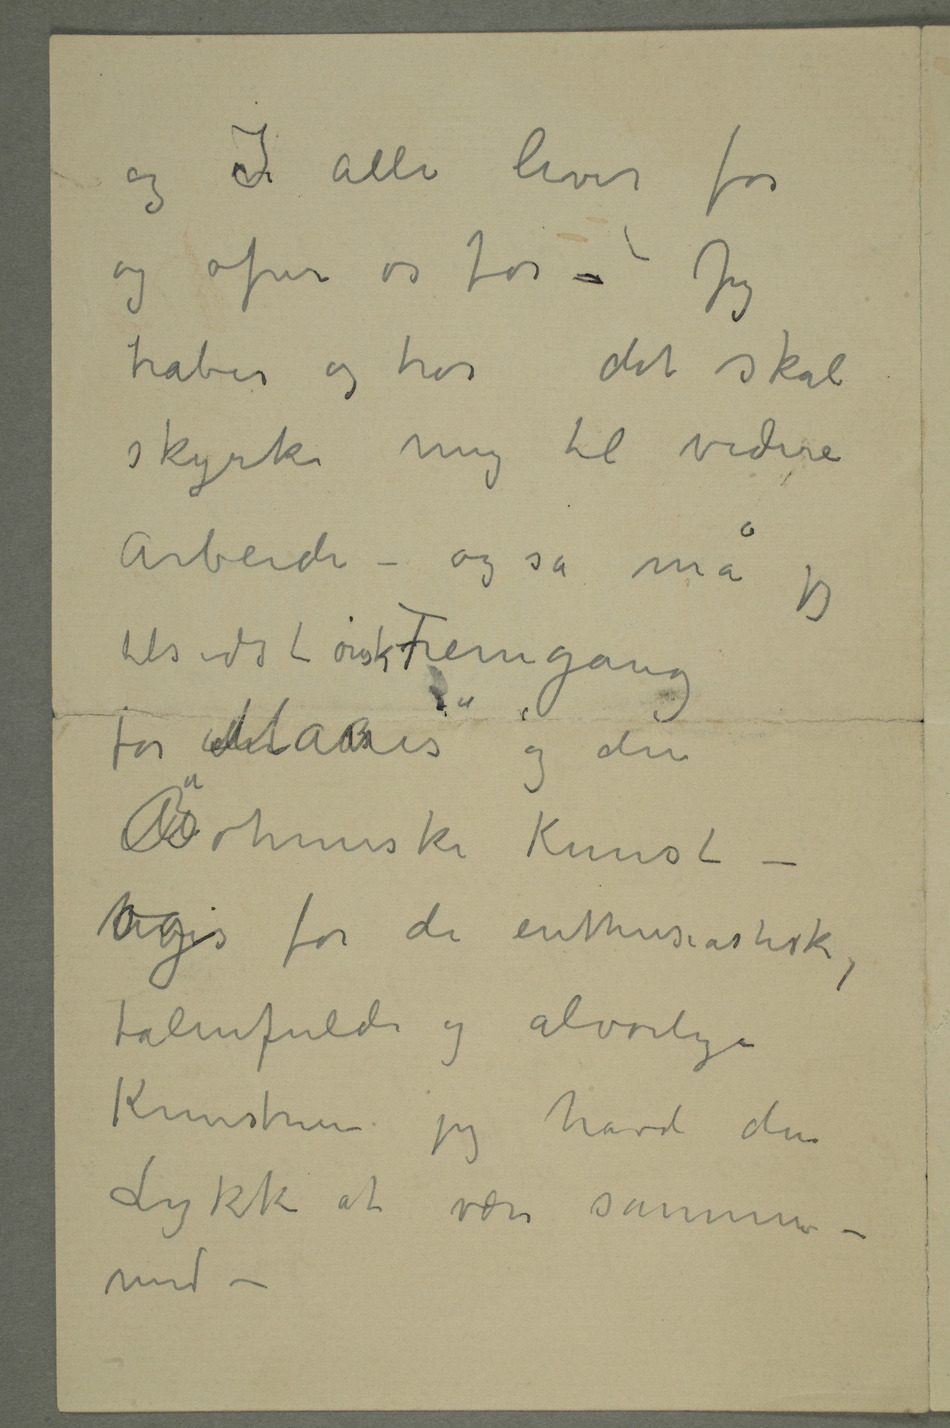 og I alle lever for
og ofrer os for – Jeg
håber og tror det skal
styrke mig til videre
Arbeide – og så må jeg
tilsidst ønske Fremgang
for Manes" og den
Böhmiske Kunst –
og for de enthusiastiske,
talenfulde og alvorlige
Kunstnere jeg havde den
Lykke at være sammen –
med –